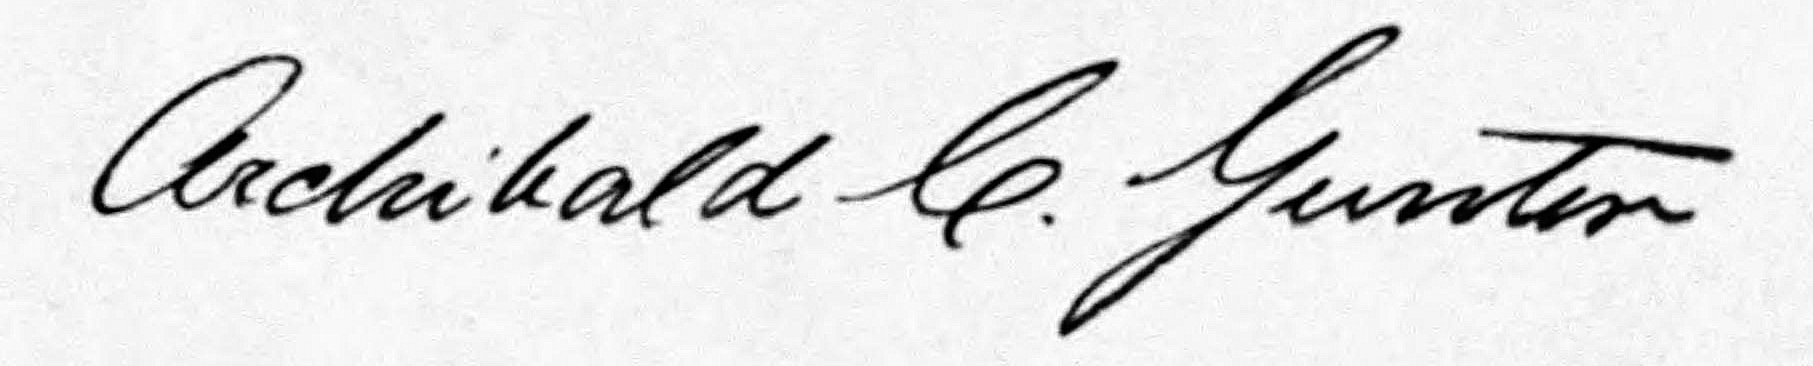 Archibald C. Gunter